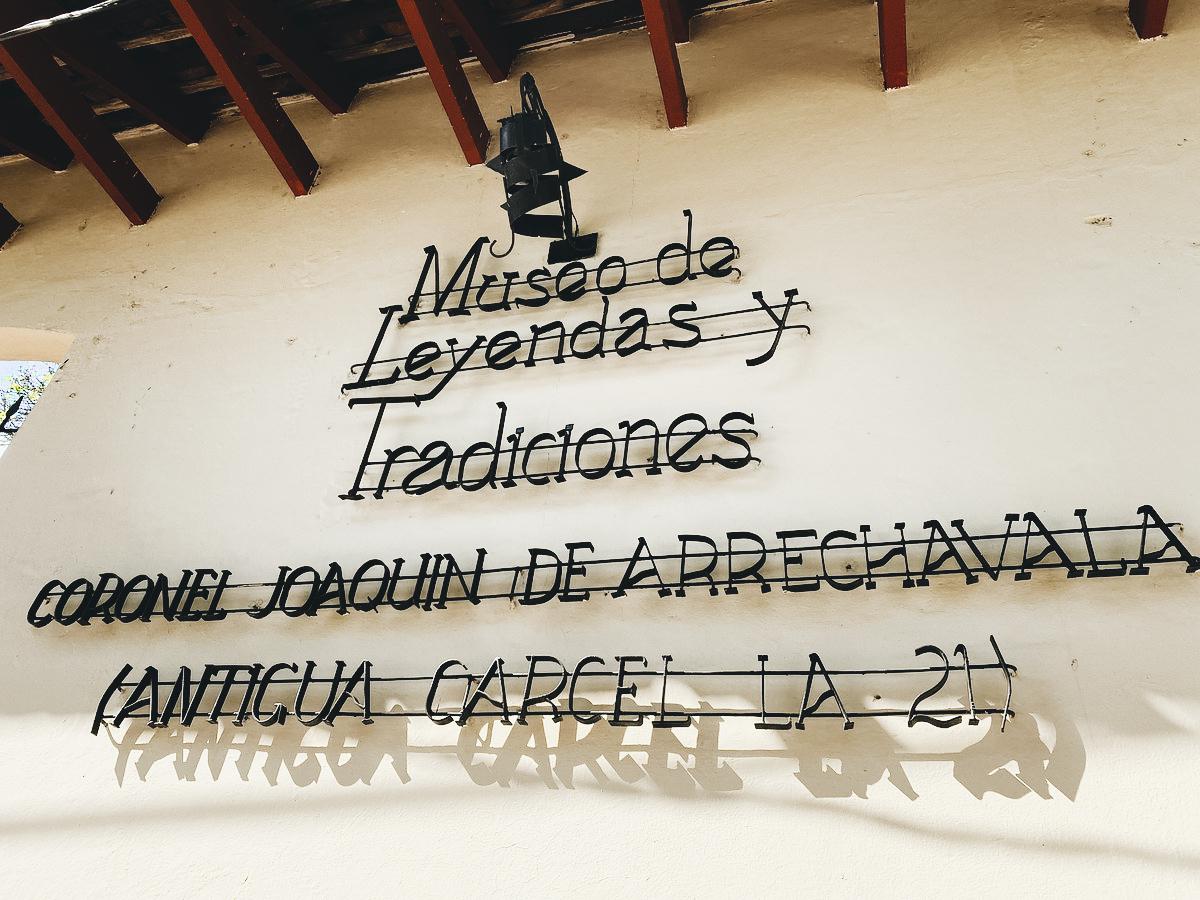 Museo de
Leyendas y
Tradiciones
CORONEL JOAQUIN DE ARRECHAVALA
(ANTIGUA CARCEL LA 21)